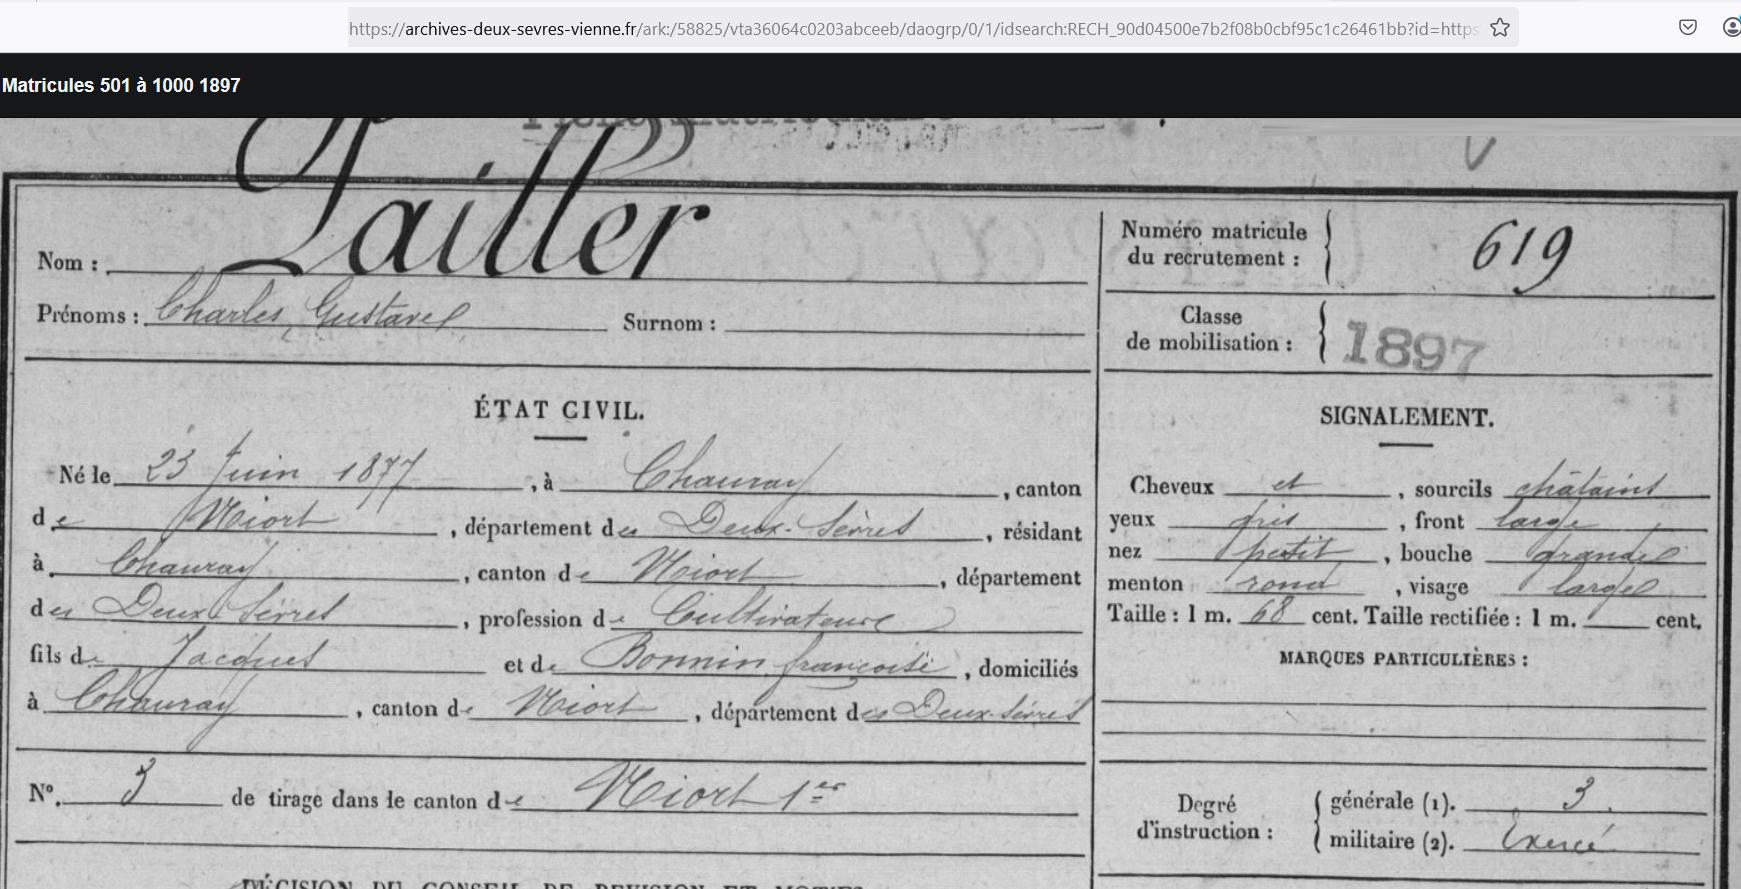 https://archives-deux-sevres-vienne.fr/ark:/58825/vta36064c0203abceeb/daogrp/0/1/idsearch:RECH_90d04500e7b2f08b0cbf95c1c26461bb?id=https
Matricules 501 à 1000 1897
Nom : Pailler
Prénoms : Charles, Gustave Surnom :
Numéro matricule
du recrutement : 619
Classe
de mobilisation : 1897
ÉTAT CIVIL.
Né le 23 Juin 1877, à Chauray, canton
de Niort, département des Deux-Sèvres, résidant
à Chauray, canton de Niort, département
des Deux-Sèvres, profession de Cultivateur
fils de Jacques et de Bonnin françoise, domiciliés
à Chauray, canton de Niort, département des Deux-Sèvres
No. 3 de tirage dans le canton de Niort 1er
SIGNALEMENT.
Cheveux et, sourcils châtains
yeux gris, front large
nez petit, bouche grande
menton rond, visage large
Taille : 1 m. 68 cent. Taille rectifiée : 1 m. cent.
MARQUES PARTICULIÈRES :
Degré
d'instruction :
générale (1). 3.
militaire (2). Exercé
DÉCISION DU CONSEIL DE REVISION ET MOTIFS